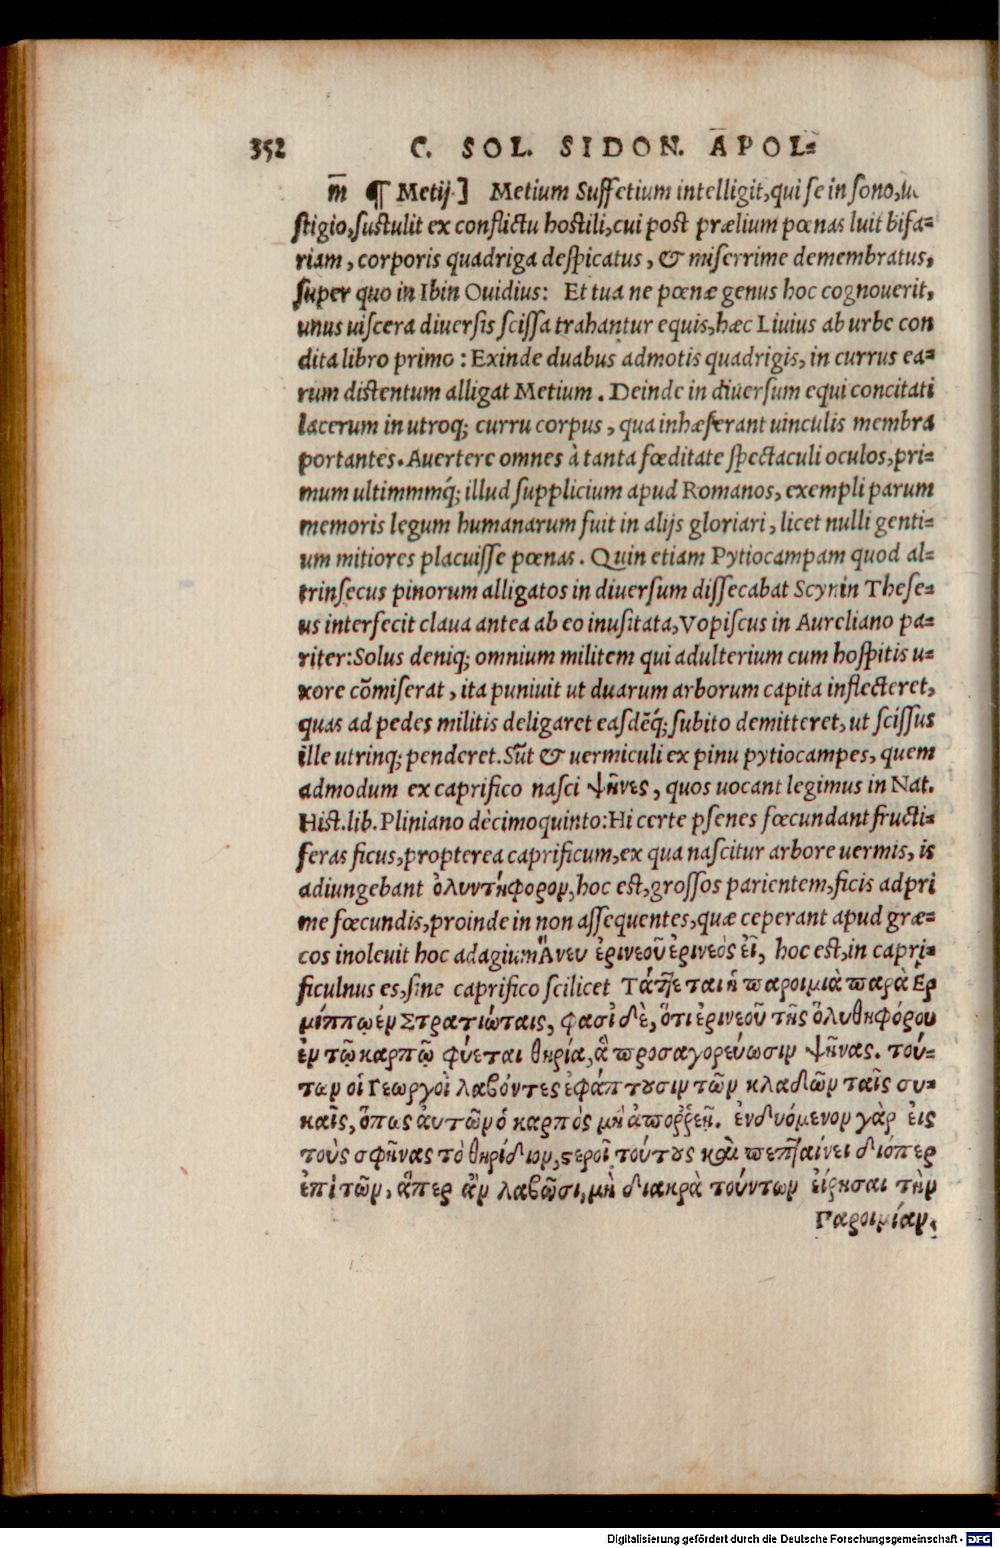 352 C. SOL. SIDON. APOL-
m̄ ¶ Metij.] Metium Suffetium intelligit, qui se in sono,
stigio, sustulit ex conflictu hostili, cui post prælium pœnas luit bifa-
riam, corporis quadriga despicatus, & miserrime demembratus,
super quo in Ibin Ouidius: Et tua ne pœnæ genus hoc cognouerit,
unus uiscera diuersis scissa trahantur equis, hæc Liuius ab urbe con
dita libro primo: Exinde duabus admotis quadrigis, in currus ea-
rum distentum alligat Metium. Deinde in diuersum equi concitati
lacerum in utroq; curru corpus, qua inhæserant uinculis membra
portantes. Auertere omnes à tanta fœditate spectaculi oculos, pri-
mum ultimmmq́; illud supplicium apud Romanos, exempli parum
memoris legum humanarum fuit in alijs gloriari, licet nulli genti-
um mitiores placuisse pœnas. Quin etiam Pytiocampam quod al-
trinsecus pinorum alligatos in diuersum dissecabat Scynin These-
us intersecit claua antea ab eo inusitata, Vopiscus in Aureliano pa-
riter: Solus deniq; omnium militem qui adulterium cum hospitis u-
xore cōmiserat, ita puniuit ut duarum arborum capita inflecteret,
quas ad pedes militis deligaret easdēq́; subito demitteret, ut scissus
ille utrinq; penderet. Sūt & uermiculi ex pinu pytiocampes, quem
admodum ex caprifico nasci ψῆνες, quos uocant legimus in Nat.
Hist. lib. Pliniano dècimoquinto: Hi certe psenes fœcundant fructi-
feras ficus, propterea caprificum, ex qua nascitur arbore uermis, is
adiungebant ὀλυντήφορον, hoc est, grossos parientem, ficis adpri
me fœcundis, proinde in non assequentes, quæ ceperant apud græ-
cos inoleuit hoc adagium Ἄνευ ἐρινεοῦ ἐρινεὸς εἶ, hoc est, in capri-
ficulnus es, sine caprifico scilicet Τάττεται ἡ παροιμιὰ παρὰ Ερ
μίππῳ ἐν Στρατιώταις, φασὶ δὲ, ὅτι ἐρινεοῦ τῆς ὀλυθηφόρου
ἐν τῷ καρπῷ φύεται θηρία, ἃ προσαγορεύωσιν ψῆνας. τού-
των οἱ Γεωργοὶ λαβόντες ἐφάπτουσιν τῶν κλαδῶν ταῖς συ-
καῖς, ὅπως ἀυτῶν ὁ καρπὸς μὴ ἀπορῤῥεῆ. ἐνδυόμενον γὰρ εἰς
τοὺς σφῆνας τὸ θηρίδιον, στεροῖ τούτους καὶ πεπαίνει διόπερ
ἐπὶ τῶν, ἅπερ ἂν λαβῶσι, μὴ διακρὰ τούντων εἰρησαι τὴν
Γαροιμίαν,
Digitalisierung gefördert durch die Deutsche Forschungsgemeinschaft - DFG